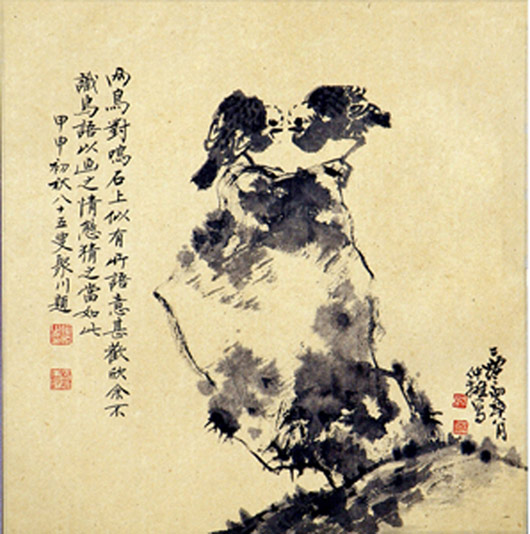 兩鳥對鳴石上似有所語意甚歡欣余不
識鳥語以画之情態猜之當如此
甲申初秋八十五叟聚川題